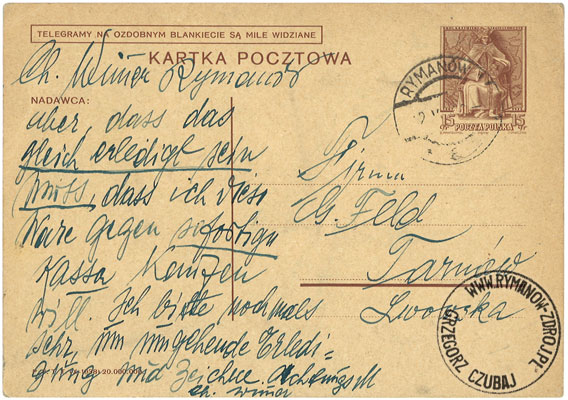 TELEGRAMY NA OZDOBNYM BLANKIECIE SĄ MILE WIDZIANE
KARTKA POCZTOWA
Ch. Weiner Rymanów
NADAWCA:
aber, dass das
gleich erledigt sein
muss, dass ich diese
Ware gegen sofortige
Kassa kaufen
will. Ich bitte nochmals
sehr, um umgehende Erledi-
gung und zeichne Achtungsvoll
Ch. Weiner
RYMANÓW
15 POCZTA POLSKA 15
Firma
G. Feld
Tarnów
Lwowska
WWW.RYMANOW-ZDROJ.PL
GRZEGORZ CZUBAJ